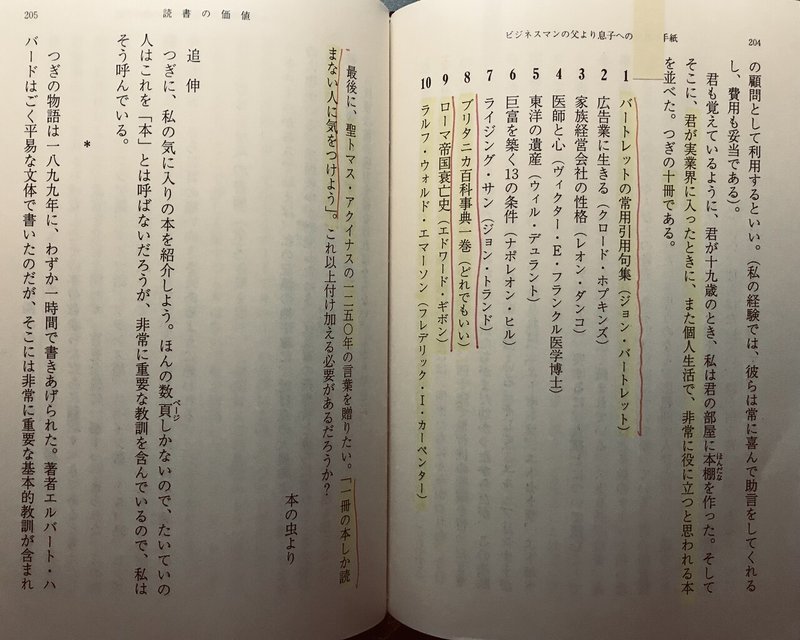 ビジネスマンの父より息子への
手紙
204
の顧問として利用するといい。(私の経験では、彼らは常に喜んで助言をしてくれる
し、費用も妥当である)。
君も覚えているように、君が十九歳のとき、私は君の部屋に本棚を作った。そして
ほんだな
そこに、君が実業界に入ったときに、また個人生活で、非常に役に立つと思われる本
を並べた。つぎの十冊である。
1 バートレットの常用引用句集(ジョン・バートレット)
2 広告業に生きる(クロード・ホプキンズ)
3 家族経営会社の性格(レオン・ダンコ)
4 医師と心(ヴィクター・E・フランクル医学博士)
5 東洋の遺産(ウィル・デュラント)
6 巨富を築く13の条件(ナポレオン・ヒル)
7 ライジング・サン(ジョン・トランド)
8 ブリタニカ百科事典一巻(どれでもいい)
9 ローマ帝国衰亡史(エドワード・ギボン)
10 ラルフ・ウォルド・エマーソン(フレデリック・I・カーペンター)
205
読書の価値
最後に、聖トマス・アクイナスの一二五〇年の言葉を贈りたい。「一冊の本しか読
まない人に気をつけよう」。これ以上付け加える必要があるだろうか?
本の虫より
追伸
つぎに、私の気に入りの本を紹介しよう。ほんの数頁しかないので、たいていの
ページ
人はこれを「本」とは呼ばないだろうが、非常に重要な教訓を含んでいるので、私は
そう呼んでいる。
*
つぎの物語は一八九九年に、わずか一時間で書きあげられた。著者エルバート・ハ
バードはごく平易な文体で書いたのだが、そこには非常に重要な基本的教訓が含まれ